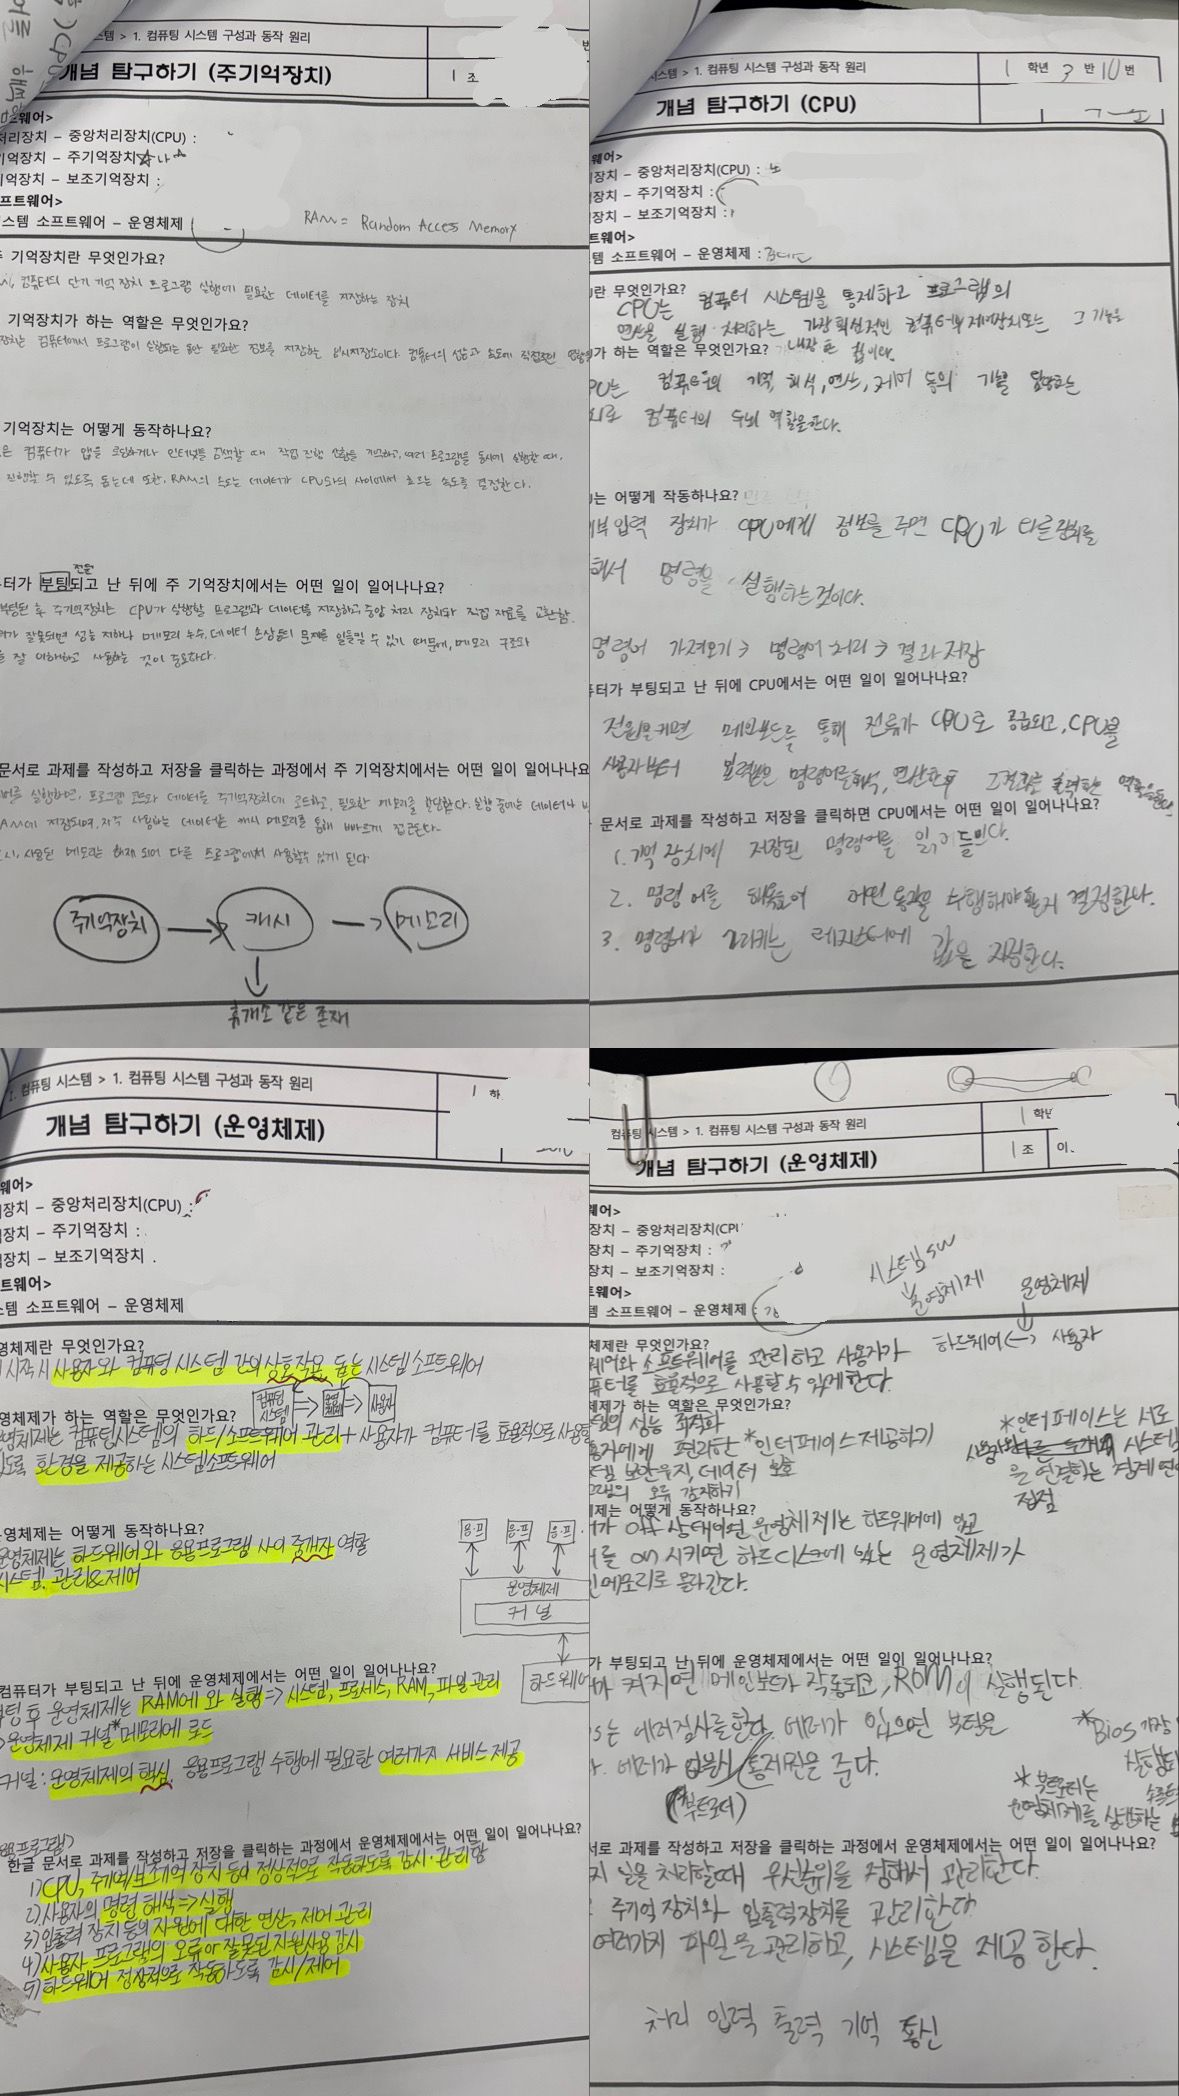 스템 > 1. 컴퓨팅 시스템 구성과 동작 원리
개념 탐구하기 (주기억장치)
1 조
처리장치 – 중앙처리장치(CPU) :
억장치 – 주기억장치
억장치 – 보조기억장치 :
프트웨어>
스템 소프트웨어 – 운영체제
RAM = Random Acces Memory
주 기억장치란 무엇인가요?
컴퓨터의 단기 기억 장치 프로그램 실행에 필요한 데이터를 저장하는 장치
기억장치가 하는 역할은 무엇인가요?
장치는 컴퓨터에서 프로그램이 실행되는 동안 필요한 정보를 저장하는 임시저장소이다. 컴퓨터의 성능과 속도에 직접적인
기억장치는 어떻게 동작하나요?
은 컴퓨터가 앱을 로딩하거나 인터넷을 검색할 때 작업 진행 상황을 기억하고, 여러 프로그램을 동시에 실행할 때,
진행할 수 있도록 돕는데 또한, RAM의 속도는 데이터가 CPU와의 사이에서 흐르는 속도를 결정한다.
전원
터가 부팅되고 난 뒤에 주 기억장치에서는 어떤 일이 일어나나요?
부팅된 후 주기억장치는 CPU가 실행할 프로그램과 데이터를 저장하고, 중앙 처리 장치와 직접 자료를 교환함.
가 잘못되면 성능 저하나 메모리 누수, 데이터 손상등의 문제를 일으킬 수 있기 때문에, 메모리 구조와
를 잘 이해하고 사용하는 것이 중요하다.
문서로 과제를 작성하고 저장을 클릭하는 과정에서 주 기억장치에서는 어떤 일이 일어나나요
실행하면, 프로그램 코드와 데이터를 주기억장치에 로드하고, 필요한 메모리를 할당한다. 실행 중에는 데이터나
RAM에 저장되며, 자주 사용하는 데이터는 캐시 메모리를 통해 빠르게 접근된다.
시, 사용된 메모리는 해제 되어 다른 프로그램에서 사용할수 있게 된다
주기억장치 → 캐시 → 메모리
휴게소 같은 존재
시스템 > 1. 컴퓨팅 시스템 구성과 동작 원리
1 학년 3 반 10 번
개념 탐구하기 (CPU)
웨어>
장치 – 중앙처리장치(CPU) :
장치 – 주기억장치 :
장치 – 보조기억장치 :
트웨어>
템 소프트웨어 – 운영체제 :
란 무엇인가요?
CPU는 컴퓨터 시스템을 통제하고 프로그램의
연산을 실행·처리하는 가장 핵심적인 컴퓨터의 제어장치 또는 그 기능을
가 하는 역할은 무엇인가요?
내장한 칩이다.
PU는 컴퓨터의 기억, 해석, 연산, 제어 등의 기능을 담당하는
치로 컴퓨터의 두뇌 역할을 한다.
는 어떻게 작동하나요?
입력 장치가 CPU에게 정보를 주면 CPU가 다른장치를
해서 명령을 실행하는것이다.
명령어 가져오기 → 명령어 처리 → 결과 저장
퓨터가 부팅되고 난 뒤에 CPU에서는 어떤 일이 일어나나요?
전원을 켜면 메인보드를 통해 전류가 CPU로 공급되고, CPU는
사용자부터 입력받은 명령어를 해석, 연산한후 그결과를 출력하는 역할을한다
문서로 과제를 작성하고 저장을 클릭하면 CPU에서는 어떤 일이 일어나나요?
1. 기억 장치에 저장된 명령어를 읽어들인다.
2. 명령어를 해독하여 어떤 동작을 수행해야 할지 결정한다.
3. 명령어가 가리키는 레지스터에 값을 저장한다.
1. 컴퓨팅 시스템 > 1. 컴퓨팅 시스템 구성과 동작 원리
1 하
개념 탐구하기 (운영체제)
웨어>
장치 – 중앙처리장치(CPU) :
장치 – 주기억장치 :
장치 – 보조기억장치
트웨어>
템 소프트웨어 – 운영체제
영체제란 무엇인가요?
시작 시 사용자와 컴퓨팅 시스템 간의 상호작용 돕는 시스템 소프트웨어
컴퓨팅 시스템 ⇒ 운영체제 ⇒ 사용자
영체제가 하는 역할은 무엇인가요?
영체제는 컴퓨팅시스템의 하드/소프트웨어 관리 + 사용자가 컴퓨터를 효율적으로 사용할
있도록 환경을 제공하는 시스템소프트웨어
영체제는 어떻게 동작하나요?
운영체제는 하드웨어와 응용프로그램 사이 중개자 역할
시스템 관리&제어
응.프 응.프 응.프
운영체제
커널
하드웨어
컴퓨터가 부팅되고 난 뒤에 운영체제에서는 어떤 일이 일어나나요?
부팅 후 운영체제는 RAM에 와 실행 => 시스템, 프로세스, RAM, 파일 관리
>운영체제 커널*메모리에 로드
커널 : 운영체제의 핵심, 응용프로그램 수행에 필요한 여러가지 서비스 제공
한글 문서로 과제를 작성하고 저장을 클릭하는 과정에서 운영체제에서는 어떤 일이 일어나나요?
1) CPU, 주기억/보조기억 장치 등이 정상적으로 작동하도록 감시·관리함
2) 사용자의 명령 해석 => 실행
3) 입출력 장치 등의 자원에 대한 연산, 제어 관리
4) 사용자 프로그램의 오류아 잘못된 자원사용 감시
5) 하드웨어 정상적으로 작동하도록 감시/제어
컴퓨팅 시스템 > 1. 컴퓨팅 시스템 구성과 동작 원리
1 학년
개념 탐구하기 (운영체제)
1 조 이.
웨어>
장치 – 중앙처리장치(CPU
장치 – 주기억장치 :
장치 – 보조기억장치 :
트웨어>
템 소프트웨어 – 운영체제 :
시스템SW
운영체제
운영체제
하드웨어 ↔ 사용자
체제란 무엇인가요?
웨어와 소프트웨어를 관리하고 사용자가
퓨터를 효율적으로 사용할 수 있게한다.
체제가 하는 역할은 무엇인가요?
템의 성능 최적화
용자에게 편리한 *인터페이스제공하기
템 보안유지, 데이터 보호
그램의 오류 감지하기
*인터페이스는 서로
시스템
을 연결하는 경계
접점
체제는 어떻게 동작하나요?
가 off 상태이면 운영체제는 하드웨어에 있고
를 on 시키면 하드디스크에 있는 운영체제가
인메모리로 올라간다.
가 부팅되고 난 뒤에 운영체제에서는 어떤 일이 일어나나요?
켜지면 메인보드가 작동되고, ROM이 실행된다
는 에러검사를 한다. 에러가 있으면 부팅은
에러가 없을시 통제권을 준다.
(부트로더)
*Bios 가장
실행되
*부트로더는
운영체제를 실행하는
서로 과제를 작성하고 저장을 클릭하는 과정에서 운영체제에서는 어떤 일이 일어나나요?
지 일을 처리할때 우선순위를 정해서 관리한다.
주기억 장치와 입출력장치를 관리한다
여러가지 파일을 관리하고, 시스템을 제공한다.
처리 입력 출력 기억 통신